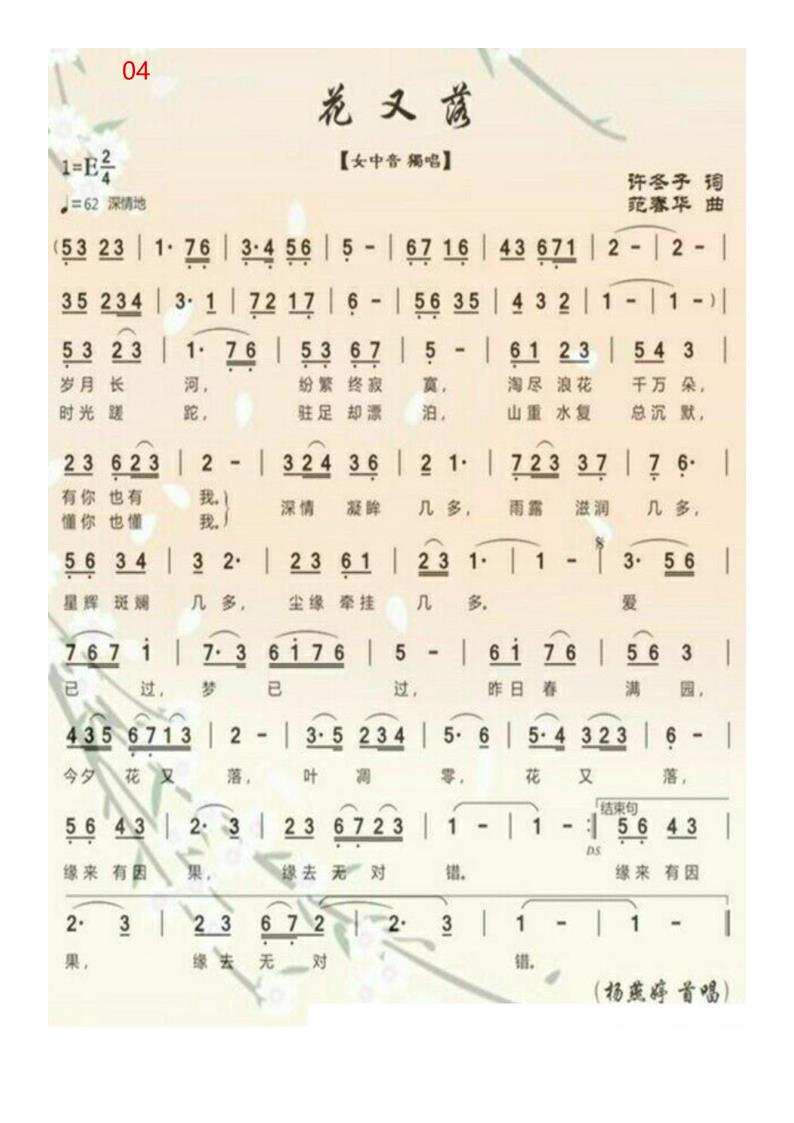 04
花又落
【女中音 獨唱】
1=E 2/4
许冬子 词
♩=62 深情地
范春华 曲
(53 23 | 1· 76 | 3·4 56 | 5 - | 67 16 | 43 671 | 2 - | 2 - |
35 234 | 3· 1 | 72 17 | 6 - | 56 35 | 4 32 | 1 - | 1 - )|
53 23 | 1· 76 | 53 67 | 5 - | 61 23 | 54 3 |
岁月长 河, 纷繁终寂 寞, 淘尽浪花 千万朵,
时光蹉 跎, 驻足却漂 泊, 山重水复 总沉默,
23 623 | 2 - | 324 36 | 2 1· | 723 37 | 7 6· |
有你也有 我。 深情 凝眸 几多, 雨露 滋润 几多,
懂你也懂 我。
56 34 | 3 2· | 23 61 | 23 1· | 1 - | 3· 56 |
星辉斑斓 几多, 尘缘牵挂 几 多。 爱
767 1 | 7·3 6176 | 5 - | 61 76 | 56 3 |
已 过, 梦 已 过, 昨日春 满 园,
435 6713 | 2 - | 3·5 234 | 5· 6 | 5·4 323 | 6 - |
今夕 花 又 落, 叶 凋 零, 花 又 落,
结束句
56 43 | 2· 3 | 23 6723 | 1 - | 1 - :‖ 56 43 |
D.S.
缘来有因 果, 缘去无 对 错。 缘来有因
2· 3 | 23 672 | 2· 3 | 1 - | 1 - ‖
果, 缘去 无 对 错。
(杨燕婷 首唱)